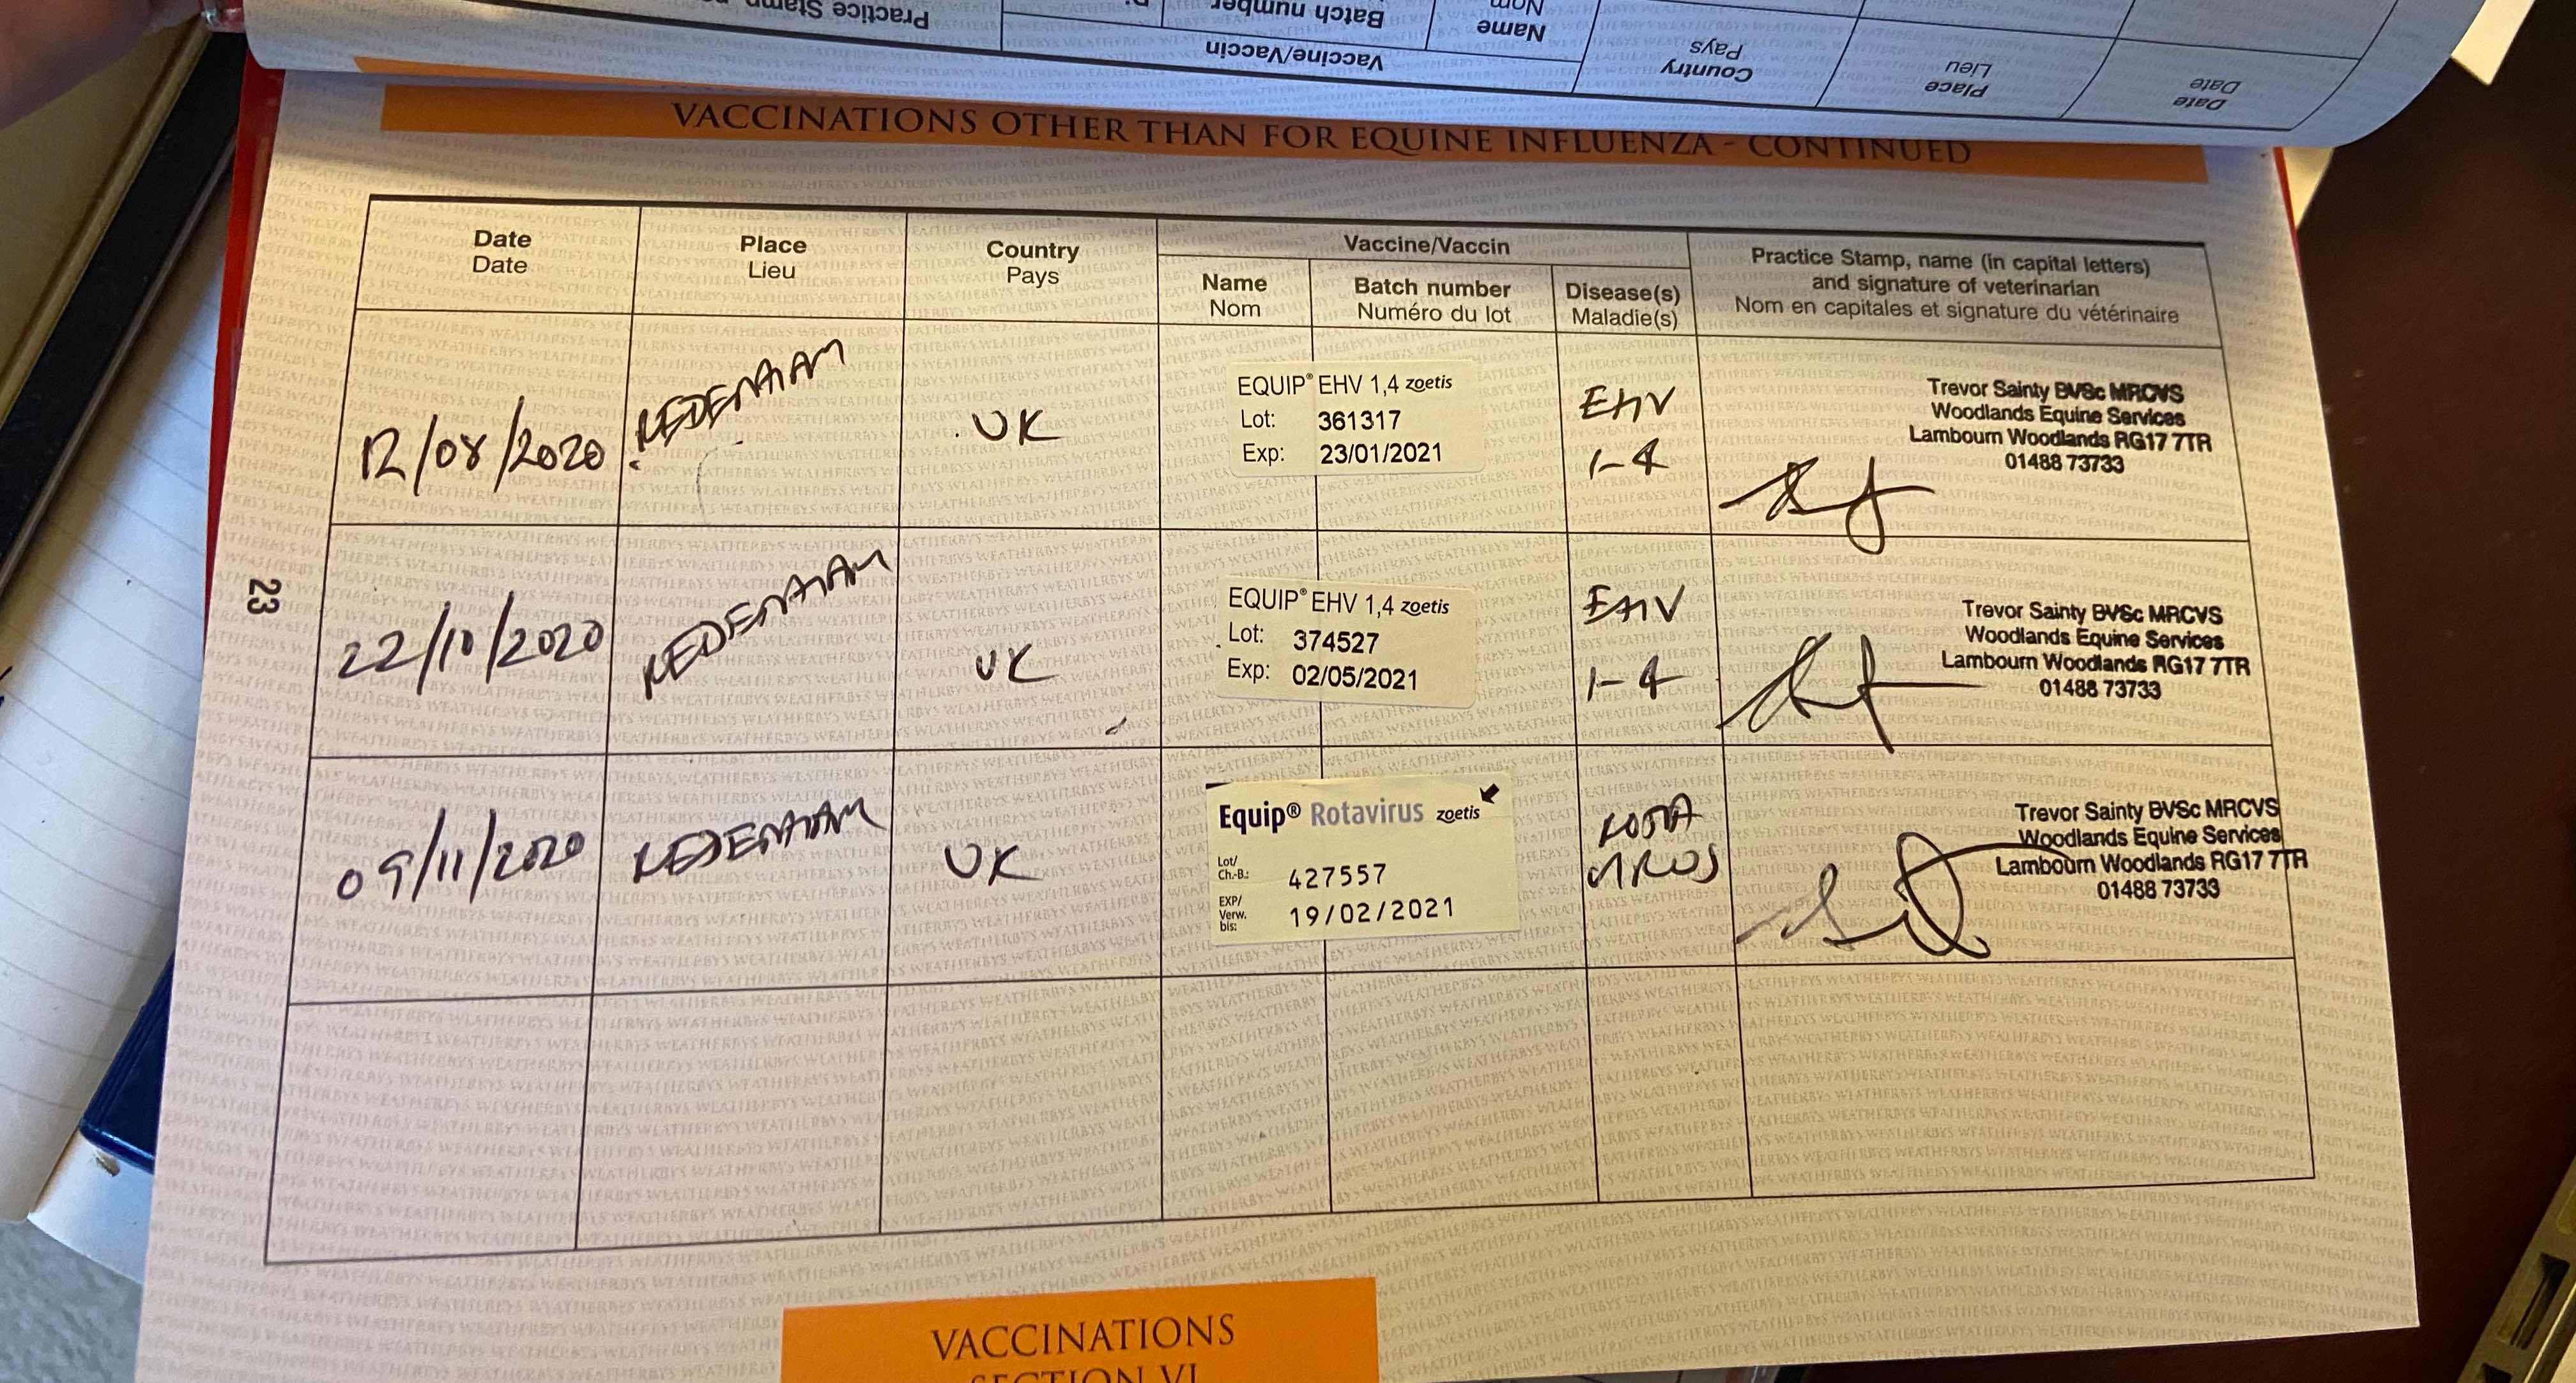 Practice Stamp
Batch number
Name
Nom
Vaccine/Vaccin
Country
Pays
Place
Lieu
Date
Date
VACCINATIONS OTHER THAN FOR EQUINE INFLUENZA - CONTINUED
Date
Date
Place
Lieu
Country
Pays
Vaccine/Vaccin
Name
Nom
Batch number
Numéro du lot
Disease(s)
Maladie(s)
Practice Stamp, name (in capital letters)
and signature of veterinarian
Nom en capitales et signature du vétérinaire
12/08/2020
REDENHAM
UK
EQUIP® EHV 1,4 zoetis
Lot: 361317
Exp: 23/01/2021
EHV
1-4
Trevor Sainty BVSc MRCVS
Woodlands Equine Services
Lambourn Woodlands RG17 7TR
01488 73733
22/10/2020
REDENHAM
UK
EQUIP® EHV 1,4 zoetis
Lot: 374527
Exp: 02/05/2021
EHV
1-4
Trevor Sainty BVSc MRCVS
Woodlands Equine Services
Lambourn Woodlands RG17 7TR
01488 73733
09/11/2020
REDENHAM
UK
Equip® Rotavirus zoetis
Lot/
Ch.-B.: 427557
EXP/
Verw.
bis: 19/02/2021
ROTA
VIRUS
Trevor Sainty BVSc MRCVS
Woodlands Equine Services
Lambourn Woodlands RG17 7TR
01488 73733
23
VACCINATIONS
SECTION VI